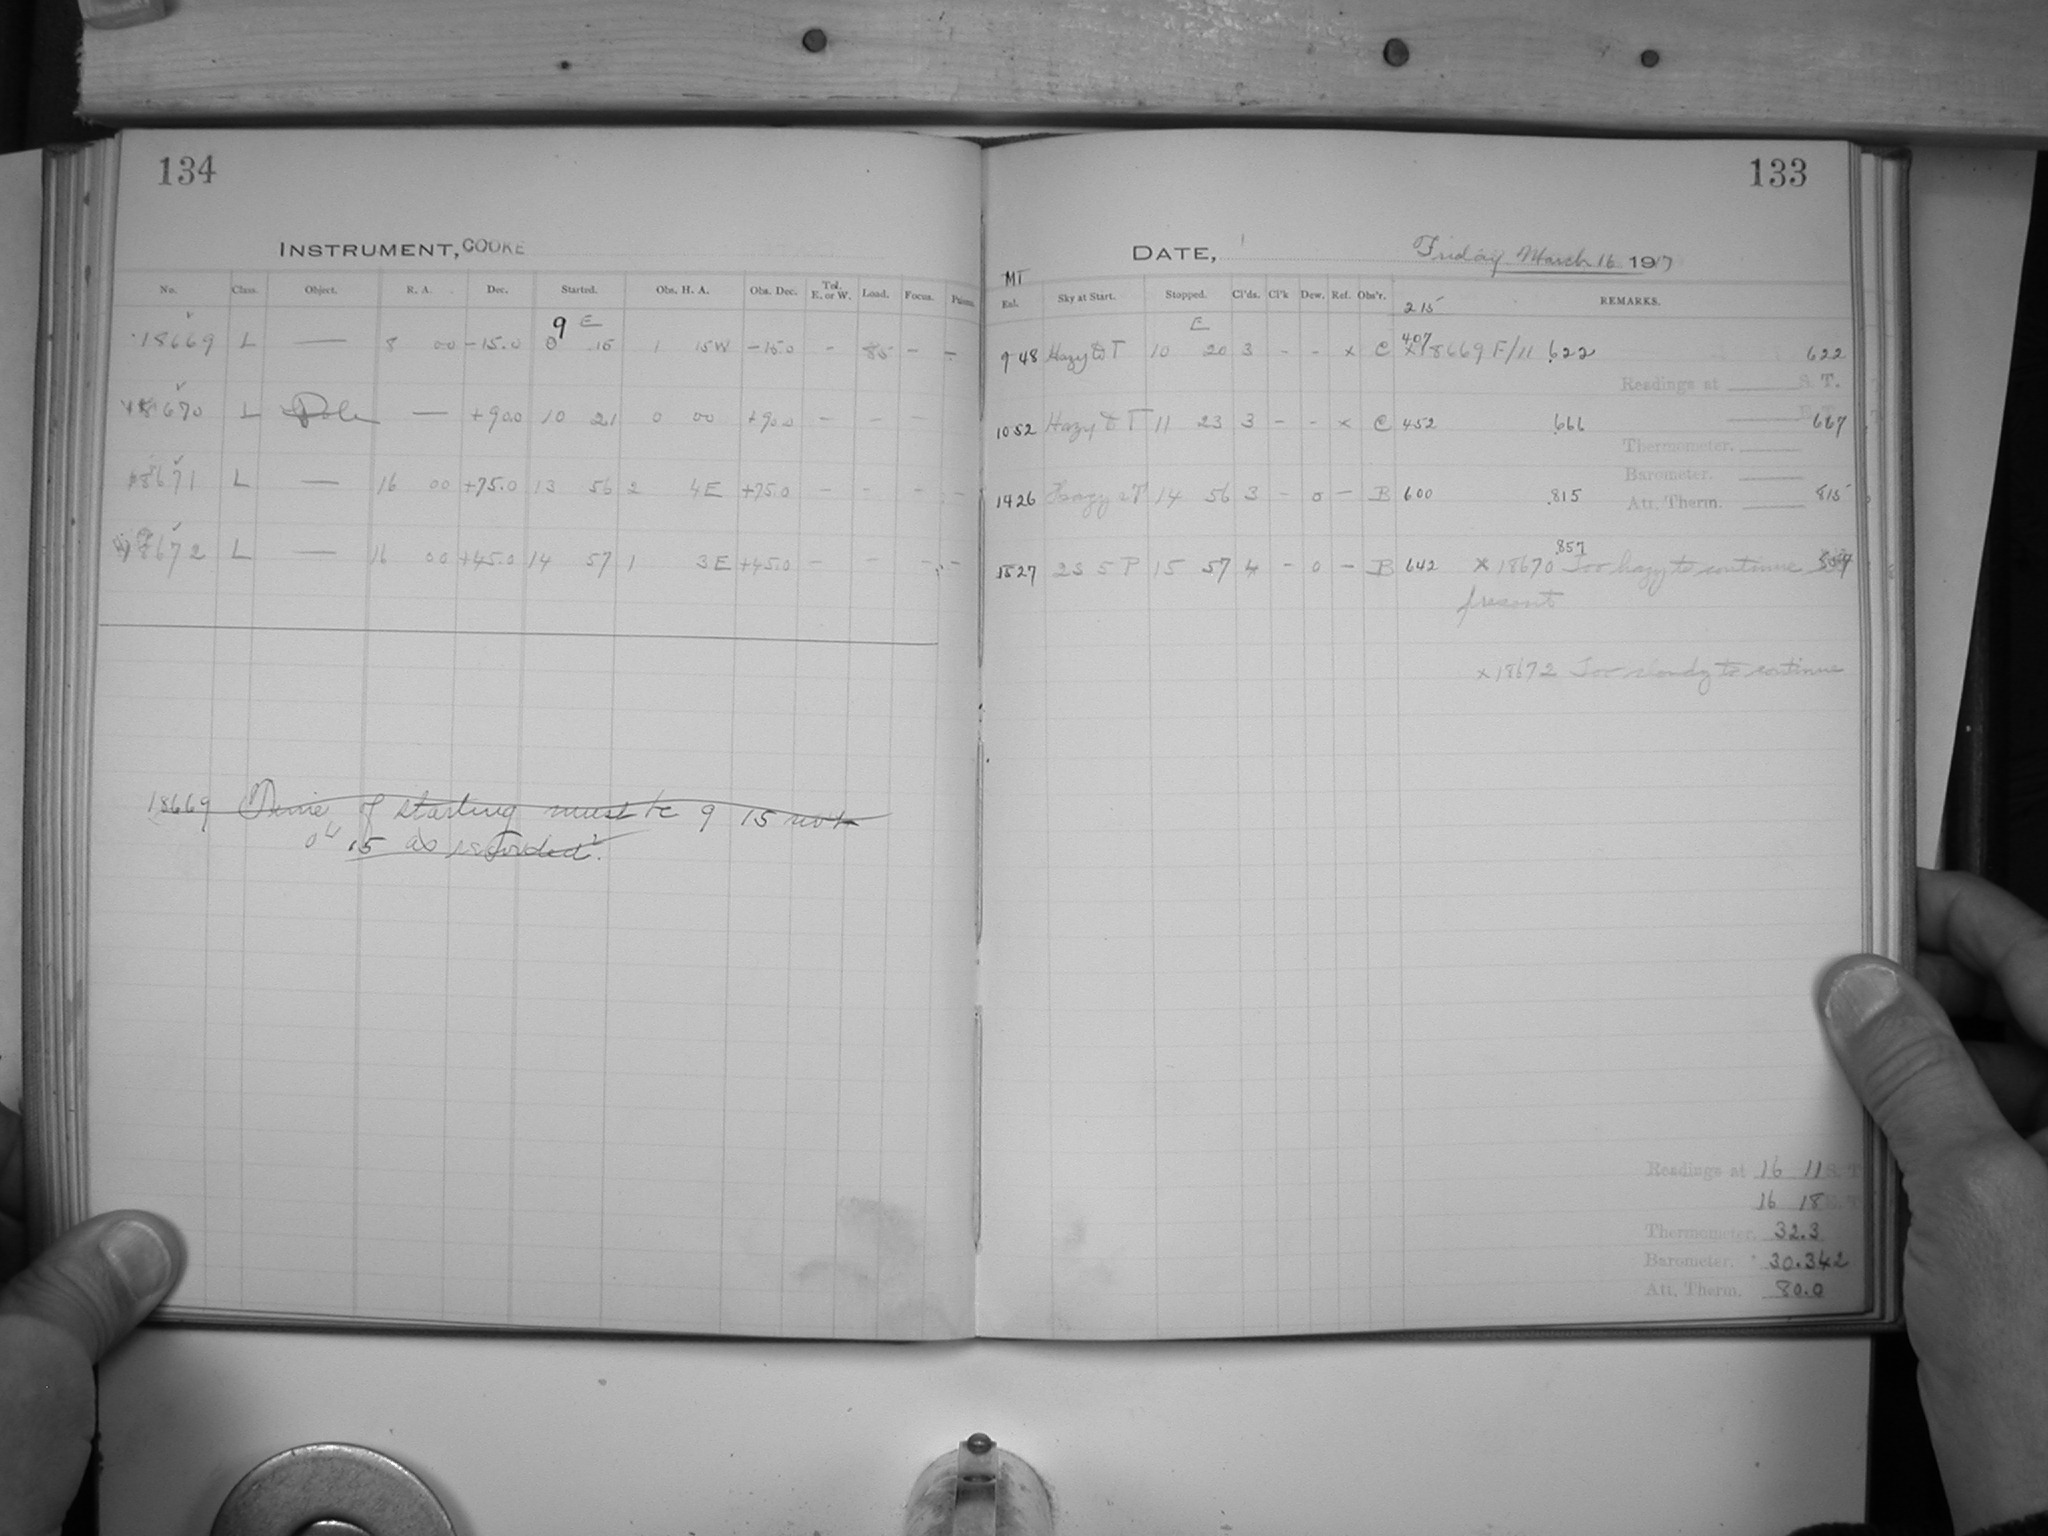 134
INSTRUMENT, COOKE
No. Class. Object. R. A. Dec. Started. Obs. H. A. Obs. Dec. Tel. E. or W. Load. Focus.
9 E
18669 L — 8 00 -15.0 0 15 1 15W -15.0 - 85 - -
18670 L Pole — +90.0 10 21 0 00 +90.0 - - -
18671 L — 16 00 +75.0 13 56 2 4E +75.0 - - - -
18672 L — 16 00 +45.0 14 57 1 3E +45.0 - - - -
18669 Time of starting must be 9 15 not
0 15 as recorded.
133
DATE, Friday March 16 1917
MT
Exl. Sky at Start. Stopped. Cl'ds. Cl'k Dew. Ref. Obs'r. 215 REMARKS.
E
407
9 48 Hazy to T 10 20 3 - - x C x18669 F/11 .622 622
Readings at S. T.
10 52 Hazy to T 11 23 3 - - x C 452 .666 667
Thermometer.
Barometer.
14 26 Hazy 14 56 3 - 0 - B 600 .815 815
Att. Therm.
.857
15 27 2S 5 P 15 57 4 - 0 - B 642 x 18670 Too hazy to continue
present
x18672 Too cloudy to continue
Readings at 16 11 S. T.
16 18
Thermometer. 32.3
Barometer. 30.342
Att. Therm. 80.0